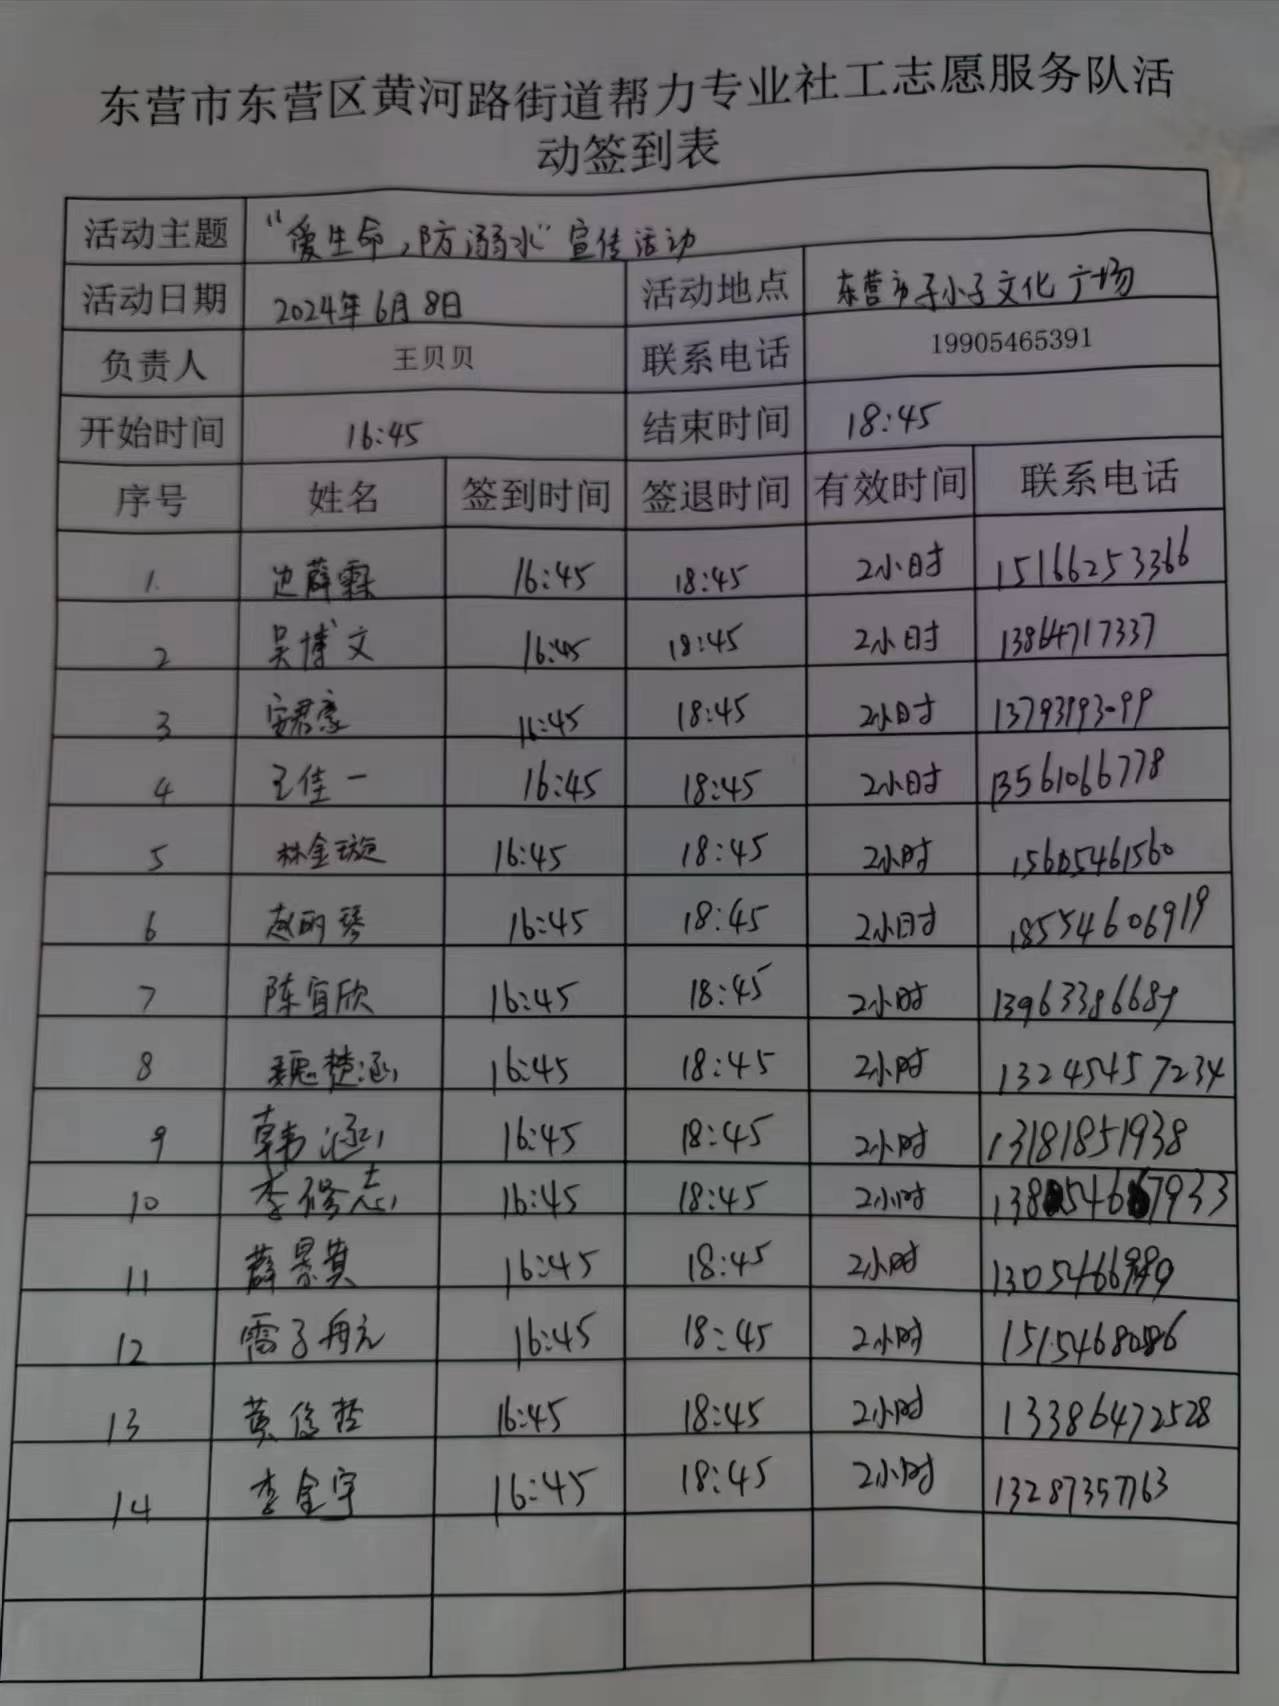 东营市东营区黄河路街道帮力专业社工志愿服务队活
动签到表
活动主题 “爱生命，防溺水”宣传活动
活动日期 2024年6月8日 活动地点 东营市孙子文化广场
负责人 王贝贝 联系电话 19905465391
开始时间 16:45 结束时间 18:45
序号 姓名 签到时间 签退时间 有效时间 联系电话
1. 边薛霖 16:45 18:45 2小时 15166253366
2 吴博文 16:45 18:45 2小时 13864717337
3 安君豪 16:45 18:45 2小时
4 王佳一 16:45 18:45 2小时 13561066778
5 林金璇 16:45 18:45 2小时 15605461560
6 赵雨琴 16:45 18:45 2小时 18554606919
7 陈宜欣 16:45 18:45 2小时 13963386689
8 魏楚涵 16:45 18:45 2小时 13245457234
9 韩涵 16:45 18:45 2小时 13181851938
10 李修志 16:45 18:45 2小时
11 薛景其 16:45 18:45 2小时
12 16:45 18:45 2小时
13 黄俊哲 16:45 18:45 2小时 13386472528
14 李金宇 16:45 18:45 2小时 13287357763